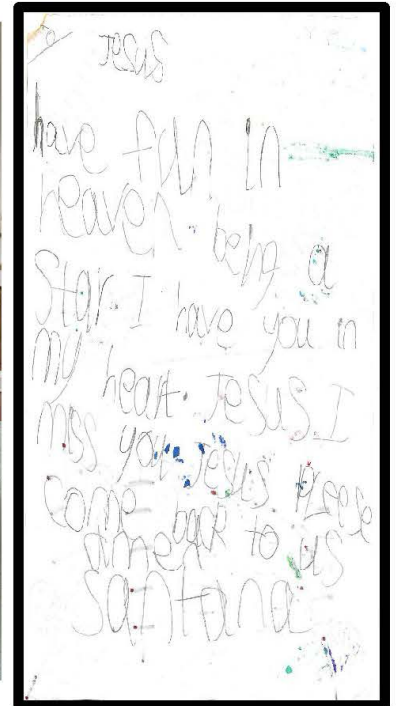 have fun in
heaven. being a
Star I have you in
my heart. Jesus. I
miss you. Jesus please
come back
amen to us
santana